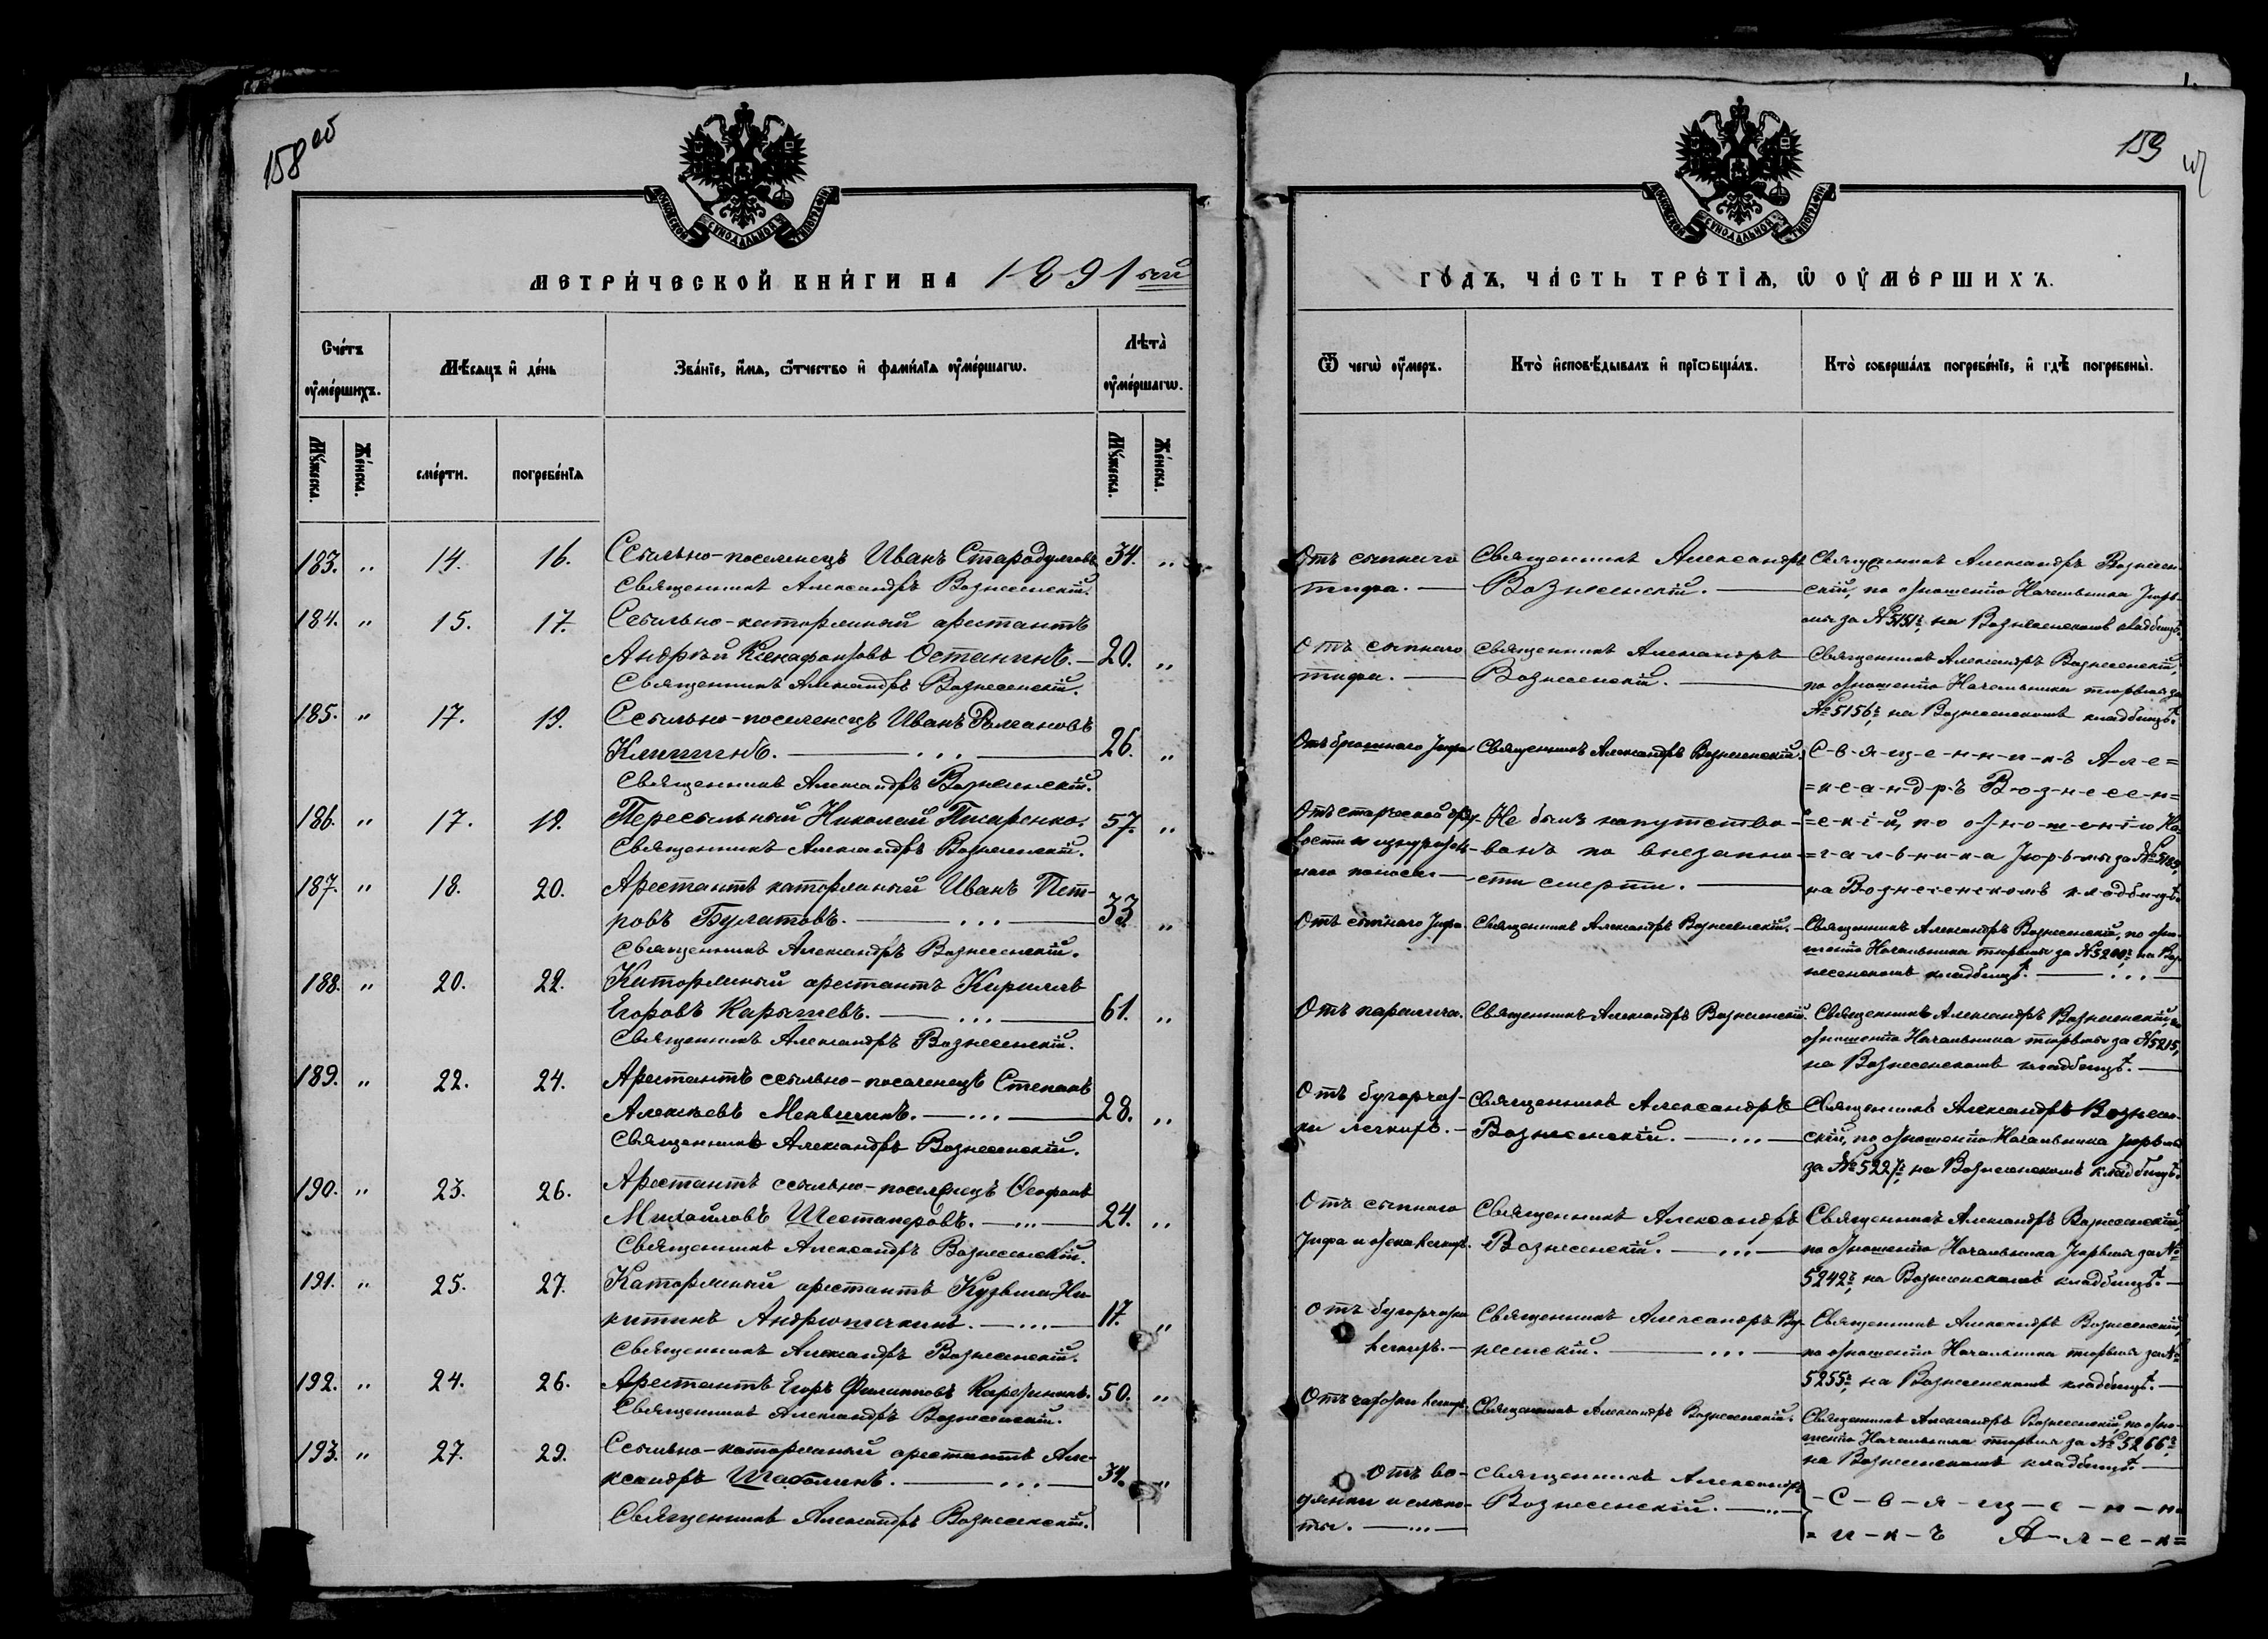 158 об
МОСКОВСКОЙ СѴНОДАЛЬНОЙ ТИПОГРАФІИ
МЕТРИ́ЧЕСКОЙ КНИ́ГИ НА 1891 ый
Сче́тъ ᲂу҆ме́ршихъ.
Мѣ́сяцъ и҆ де́нь
Зва́нїе, и҆́мѧ, ѻ҆́тчество и҆ фамı́лїѧ ᲂу҆ме́ршагѡ.
Лѣ́та ᲂу҆ме́ршагѡ.
Му́жеска.
Же́нска.
сме́рти.
погребе́нїѧ
Му́жеска.
Же́нска.
183. „ 14. 16. Ссыльно-поселенецъ Иванъ Стародумовъ 34. „
Священникъ Александръ Вознесенскій.
184. „ 15. 17. Ссыльно-каторжный арестантъ
Андрей Ксенафонтовъ Останинъ. — 20. „
Священникъ Александръ Вознесенскій.
185. „ 17. 19. Ссыльно-поселенецъ Иванъ Романовъ
Клишинъ. — ... — 26. „
Священникъ Александръ Вознесенскій.
186. „ 17. 19. Пересыльный Николай Писаренко. 57. „
Священникъ Александръ Вознесенскій.
187. „ 18. 20. Арестантъ каторжный Иванъ Пет-
ровъ Булатовъ. — ... — 33 „
Священникъ Александръ Вознесенскій.
188. „ 20. 22. Каторжный арестантъ Кириллъ
Егоровъ Карышевъ. — ... — 61. „
Священникъ Александръ Вознесенскій.
189. „ 22. 24. Арестантъ ссыльно-поселенецъ Степанъ
Алексѣевъ Меньшинъ. — ... — 28. „
Священникъ Александръ Вознесенскій.
190. „ 23. 26. Арестантъ ссыльно-поселенецъ Ѳеофанъ
Михайловъ Шестаперовъ. — ... — 24. „
Священникъ Александръ Вознесенскій.
191. „ 25. 27. Каторжный арестантъ Кузьма Ни-
китинъ Андрюшечкинъ. — ... — 17. „
Священникъ Александръ Вознесенскій.
192. „ 24. 26. Арестантъ Егоръ Филипповъ 50. „
Священникъ Александръ Вознесенскій.
193. „ 27. 29. Ссыльно-каторжный арестантъ Але-
ксандръ Шаболинъ. — ... — 34. „
Священникъ Александръ Вознесенскій.
159
МОСКОВСКОЙ СѴНОДАЛЬНОЙ ТИПОГРАФІИ
ГО́ДЪ, ЧА́СТЬ ТРЕ́ТЇѦ, Ѡ҆ ᲂУ҆МЕ́РШИХЪ.
Ѿ чегѡ̀ ᲂу҆́меръ.
Кто̀ и҆сповѣ́дывалъ и҆ прїѡбща́лъ.
Кто̀ соверша́лъ погребе́нїе, и҆ гдѣ̀ погребены̀.
Отъ сыпнаго
тифа. —
Священникъ Александръ
Вознесенскій. —
Священникъ Александръ Вознесен-
скій, по отношенію Начальника Тюрь-
мы за № 5151й, на Вознесенскомъ кладбищѣ.
Отъ сыпнаго
тифа. —
Священникъ Александръ
Вознесенскій. —
Священникъ Александръ Вознесенскій,
по отношенію Начальника тюрьмы за
№ 5156й, на Вознесенскомъ кладбищѣ.
Отъ брюшнаго тифа
Священникъ Александръ Вознесенскій.
С-в-я-щ-е-н-н-и-к-ъ А-л-е=
=к-с-а-н-д-р-ъ В-о-з-н-е-с-е-н=
Отъ старческой дрях-
лости и изнурител-
наго поноса. —
Не былъ напутство-
ванъ по внезапно-
сти смерти. —
=с-к-і-й, п-о о-т-н-о-ш-е-н-і-ю На-
=ч-а-л-ь-н-и-к-а Тюрь-мы за №
на Вознесенскомъ кладбищѣ.
Отъ сыпнаго тифа
Священникъ Александръ Вознесенскій. —
Священникъ Александръ Вознесенскій, по отно-
шенію Начальника тюрьмы за № 5200й, на Воз-
несенскомъ кладбищѣ. — ... —
Отъ паралича.
Священникъ Александръ Вознесенскій.
Священникъ Александръ Вознесенскій, по
отношенію Начальника тюрьмы за № 5215,
на Вознесенскомъ кладбищѣ. —
Отъ бугорчат-
ки легкихъ. —
Священникъ Александръ
Вознесенскій. — ... —
Священникъ Александръ Вознесен-
скій, по отношенію Начальника тюрьмы
за № 5227й, на Вознесенскомъ кладбищѣ.
Отъ сыпнаго
тифа и отека легкихъ.
Священникъ Александръ
Вознесенскій. — ... —
Священникъ Александръ Вознесенскій,
по отношенію Начальника тюрьмы за №
5242й, на Вознесенскомъ кладбищѣ. —
Отъ бугорчатки
легкихъ. —
Священникъ Александръ Воз-
несенскій. — ... —
Священникъ Александръ Вознесенскій,
по отношенію Начальника тюрьмы за №
5255й, на Вознесенскомъ кладбищѣ. —
Отъ чахотки легкихъ.
Священникъ Александръ Вознесенскій.
Священникъ Александръ Вознесенскій, по отно-
шенію Начальника тюрьмы за № 5266й,
на Вознесенскомъ кладбищѣ. —
Отъ во-
дянки и
ты. — ... —
Священникъ Александръ
Вознесенскій. — ... —
-С-в-я-щ-е-н-н-
=и-к-ъ А-л-е-к=